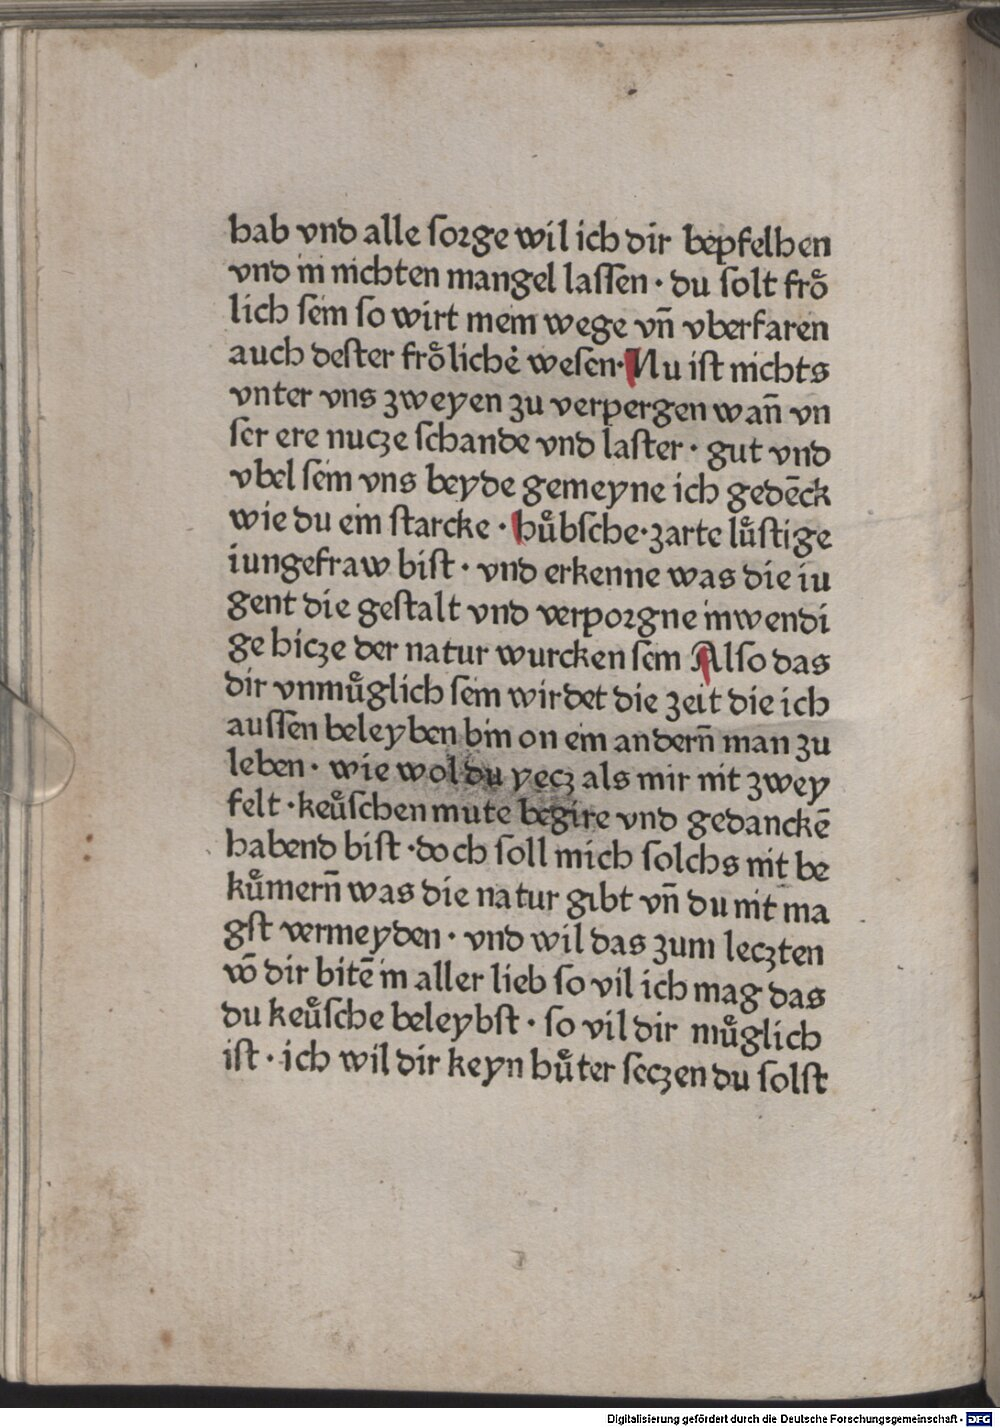 hab vnd alle ſorge wil ich dir bepfelhen
vnd in nichten mangel laſſen · du ſolt froͤ
lich ſein ſo wirt mein wege vn̄ vberfaren
auch deſter froͤlicher̉ weſen · Nu iſt nichts
vnter vns zweyen zu verpergen wan̄ vn
ſer ere nucze ſchande vnd laſter · gut vnd
vbel ſein vns beyde gemeyne ich gedēck
wie du ein ſtarcke · huͤbſche · zarte luͤſtige
iungefraw biſt · vnd erkenne was die iu
gent die geſtalt vnd verporgne inwendi
ge hicze der natur wurcken ſein Alſo das
dir vnmuͤglich ſein wirdet die zeit die ich
auſſen beleyben bin on ein andern̄ man zu
leben · wie wol du yecz als mir nit zwey
felt · keuͤſchen mute begire vnd gedanckē
habend biſt · doch ſoll mich ſolchs nit be
kuͤmern̄ was die natur gibt vn̄ du nit ma
gſt vermeyden · vnd wil das zum leczten
vō dir bitē in aller lieb ſo vil ich mag das
du keuͤſche beleybſt · ſo vil dir muͤglich
iſt · ich wil dir keyn huͤter ſeczen du ſolſt
Digitalisierung gefördert durch die Deutsche Forschungsgemeinschaft - DFG